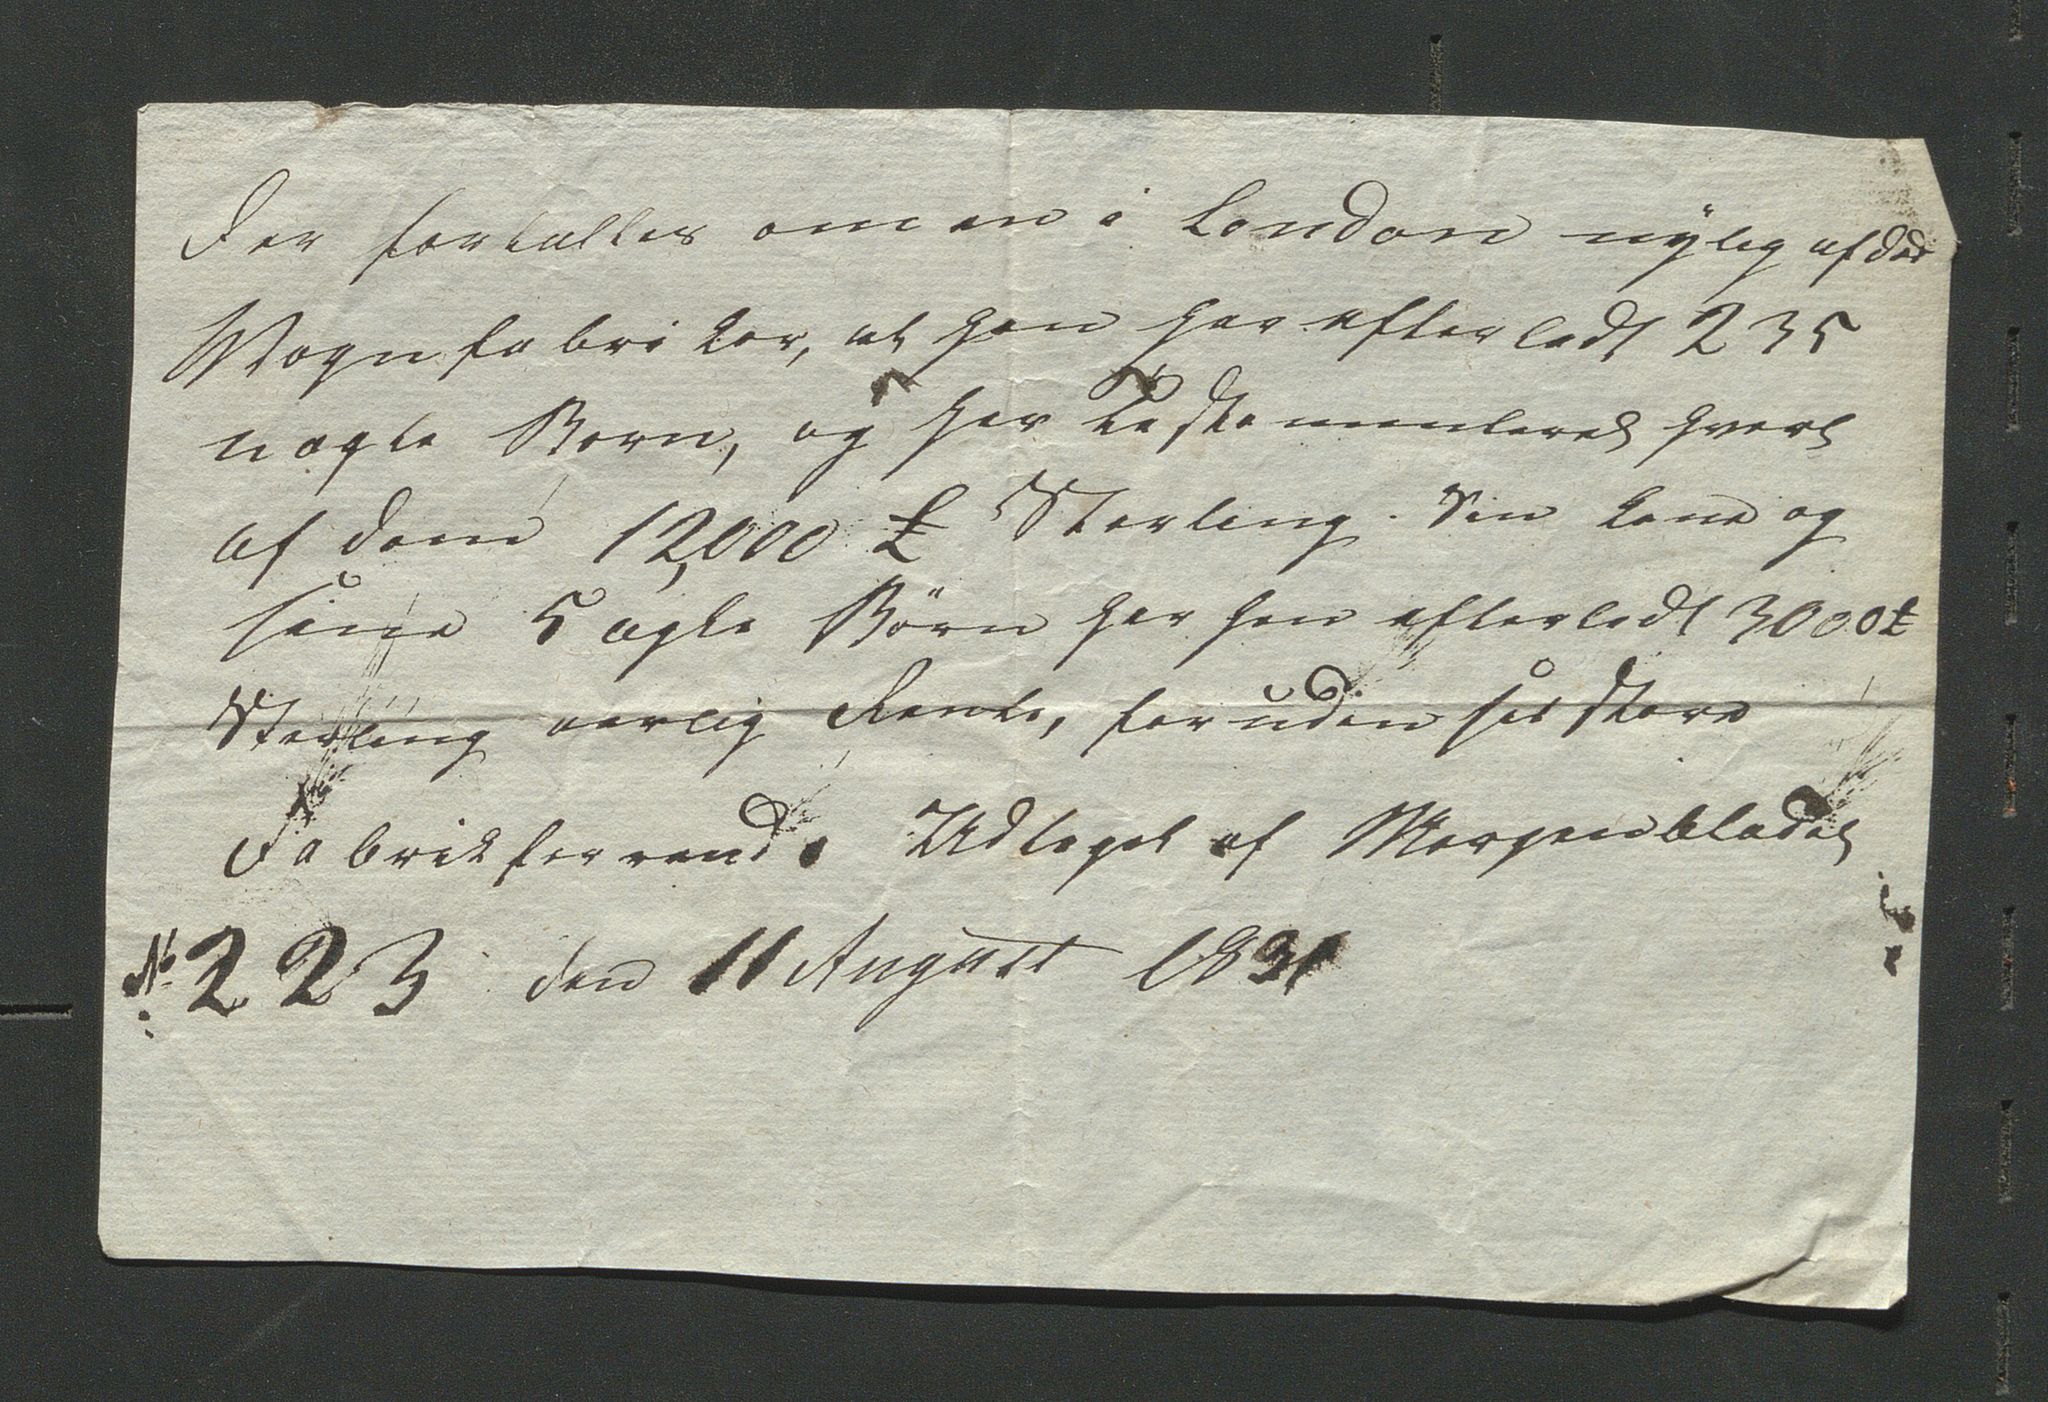 Der fortælles om en i London nylig afdød
Wognfabrikør, at han har efterladt 235
uægte Børn, og har Testamenteret hvert
af dem 12,000 £ Sterling. Sin Kone og
sine 5 ægte Børn har han efterladt 3000 £
Sterling aarlig Rente, foruden sit store
Fabrikforraad. Udtoget af Morgenbladet
No 223 den 11 August 1831